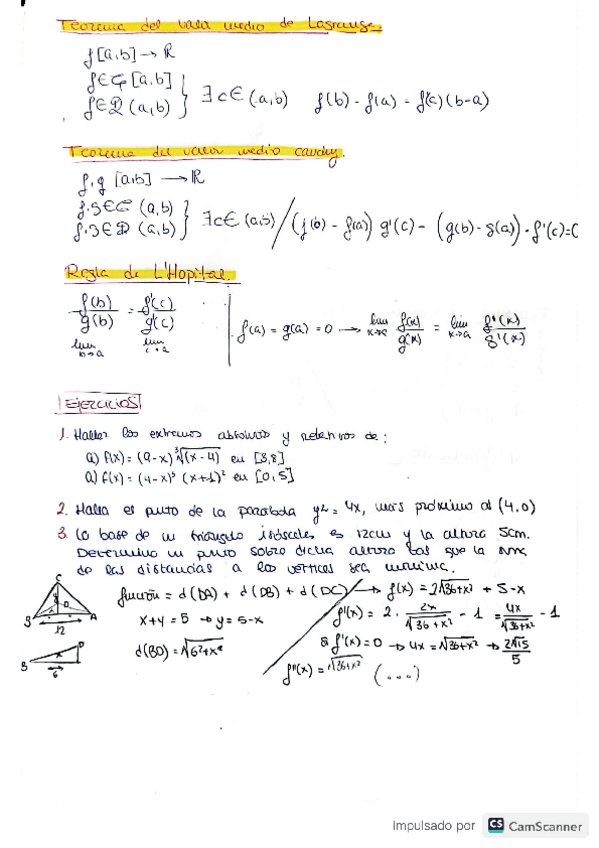 Teorema del valor medio de Lagrange.
f [a,b] → ℝ
f ∈ C [a,b]
f ∈ D (a,b) } ∃ c ∈ (a,b) f(b) - f(a) = f'(c)(b-a)
Teorema del valor medio cauchy.
f,g [a,b] → ℝ
f,g ∈ C (a,b)
f,g ∈ D (a,b) } ∃ c ∈ (a,b) / (f(b) - f(a)) g'(c) - (g(b) - g(a)) · f'(c) = 0
Regla de L'Hopital.
f(b)/g(b) = f'(c)/g'(c)
lim b→a lim c→a
f(a) = g(a) = 0 → lim x→a f(x)/g(x) = lim x→a f'(x)/g'(x)
Ejercicios
1. Hallar los extremos absolutos y relativos de:
en [3,8]
en [0,5]
2. Halla el punto de la parabola y² = 4x, más próximo al (4,0)
3. La base de un triángulo isósceles es 12cm y la altura 5cm.
Determina un punto sobre dicha altura tal que la suma
de las distancias a los vértices sea mínima.
C
D
B A
12
función = d(DA) + d(DB) + d(DC) → f(x) = 2√36+x² + 5-x
x+y = 5 → y = 5-x
f'(x) = 2 · 2x/√36+x² - 1 = 4x/√36+x² - 1
D
x
B 6
d(BD) = √6²+x²
f'(x)=0 → 4x = √36+x² → 2√15/5
f''(x) = √36+x² (...)
Impulsado por CS CamScanner